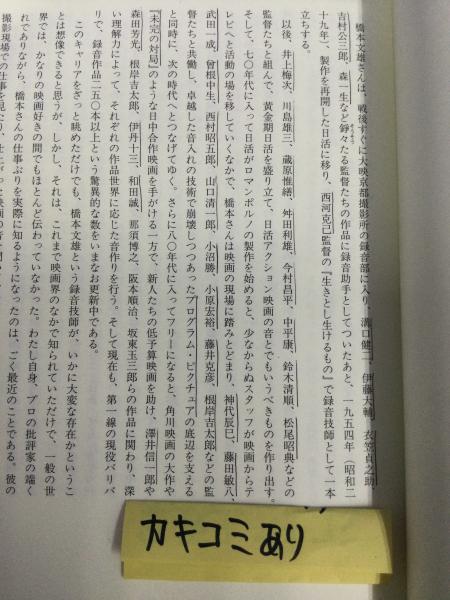 橋本文雄さんは、戦後すぐに大映京都撮影所の録音部に入り、溝口健二、伊藤大輔、衣笠貞之助、
吉村公三郎、森一生など錚々たる監督たちの作品に録音助手としてついたあと、一九五四年（昭和二
十九年）、製作を再開した日活に移り、西河克己監督の『生きとし生けるもの』で録音技師として一本
立ちする。
以後、井上梅次、川島雄三、蔵原惟繕、舛田利雄、今村昌平、中平康、鈴木清順、松尾昭典などの
監督たちと組んで、黄金期日活を盛り立て、日活アクション映画の音とでもいうべきものを作り出す。
そして、七〇年代に入って日活がロマンポルノの製作を始めると、少なからぬスタッフが映画からテ
レビへと活動の場を移していくなかで、橋本さんは映画の現場に踏みとどまり、神代辰巳、藤田敏八、
武田一成、曾根中生、西村昭五郎、山口清一郎、小沼勝、小原宏裕、藤井克彦、根岸吉太郎などの監
督たちと共働し、卓越した音入れの技術で崩壊しつつあったプログラム・ピクチュアの底辺を支える
と同時に、次の時代へとつなげてゆく。さらに八〇年代に入ってフリーになると、角川映画の大作や
『未完の対局』のような日中合作映画を手がける一方で、新人たちの低予算映画を助け、澤井信一郎や
森田芳光、根岸吉太郎、伊丹十三、和田誠、那須博之、阪本順治、坂東玉三郎らの作品に関わり、深
い理解力によって、それぞれの作品世界に応じた音作りを行う。そして現在も、第一線の現役バリバ
リで、録音作品二五〇本以上という驚異的な数をいまなお更新中である。
このキャリアをざっと眺めただけでも、橋本文雄という録音技師が、いかに大変な存在かというこ
とは想像できると思うが、しかし、それは、これまで映画界のなかで知られていただけで、一般の世
界では、かなりの映画好きの間でもほとんど伝わっていなかった。わたし自身、プロの批評家の端く
れでありながら、橋本さんの仕事ぶりを実際に知るようになったのは、ごく最近のことである。彼の
撮影現場での仕事を見たり、
カキコミあり